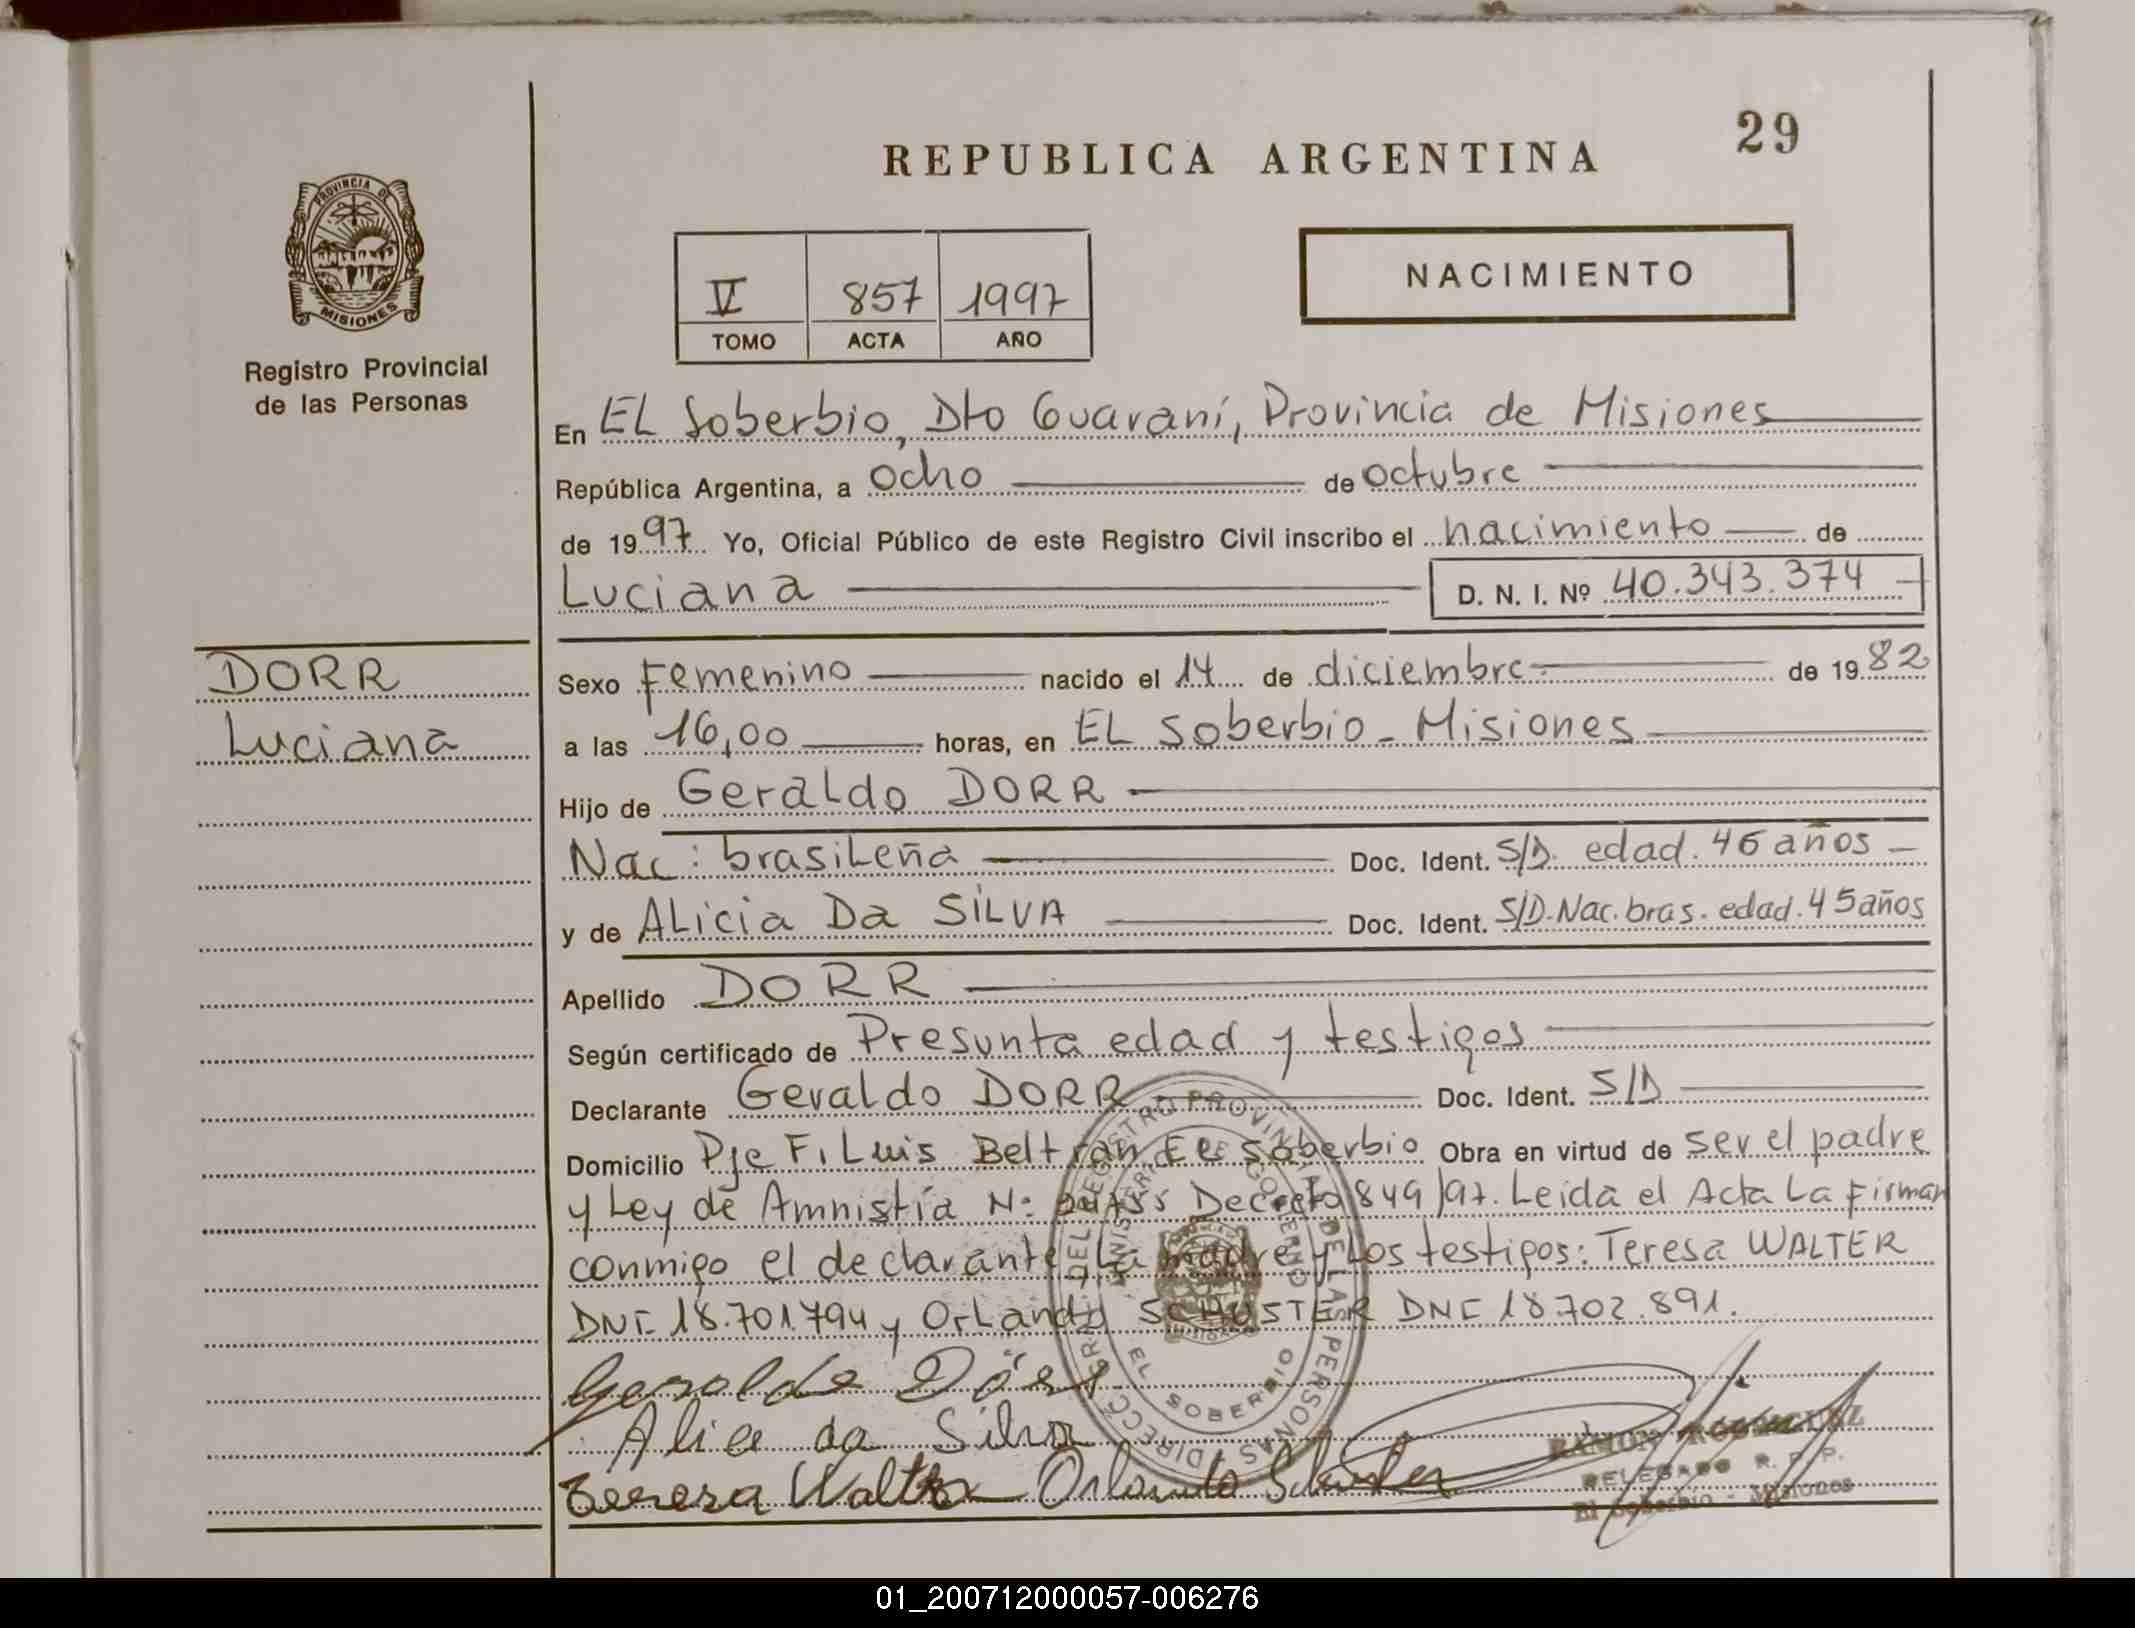 29
REPUBLICA ARGENTINA
PROVINCIA DE
MISIONES
Registro Provincial
de las Personas
V 857 1997
TOMO ACTA AÑO
NACIMIENTO
En EL Soberbio, Dto Guaraní, Provincia de Misiones
República Argentina, a ocho de octubre
de 1997 Yo, Oficial Público de este Registro Civil inscribo el nacimiento de
Luciana D. N. I. Nº 40.343.374
DORR
Luciana
Sexo Femenino nacido el 14 de diciembre de 1982
a las 16,00 horas, en EL Soberbio - Misiones
Hijo de Geraldo DORR
Nac: brasileña Doc. Ident. S/D. edad. 46 años
y de ALicia Da SiLVA Doc. Ident. S/D. Nac. bras. edad. 45 años
Apellido DORR
Según certificado de Presunta edad y testigos
Declarante Geraldo DORR Doc. Ident. S/D
Domicilio Pje F. Luis Beltran EL Soberbio Obra en virtud de ser el padre
y Ley de Amnistía Nº Decreto 849/97. Leida el Acta La Firman
conmigo el declarante La madre y Los testigos: Teresa WALTER
DNI 18.701.794 y OrLando SCHUSTER DNI 18.702.891.
Geraldo Dörr
Alicia da Silva
Teresa Walter Orlando Schuster
RAMON RODRIGUEZ
DELEGADO R. P. P.
El Soberbio - Misiones
EL SOBERBIO
01_200712000057-006276